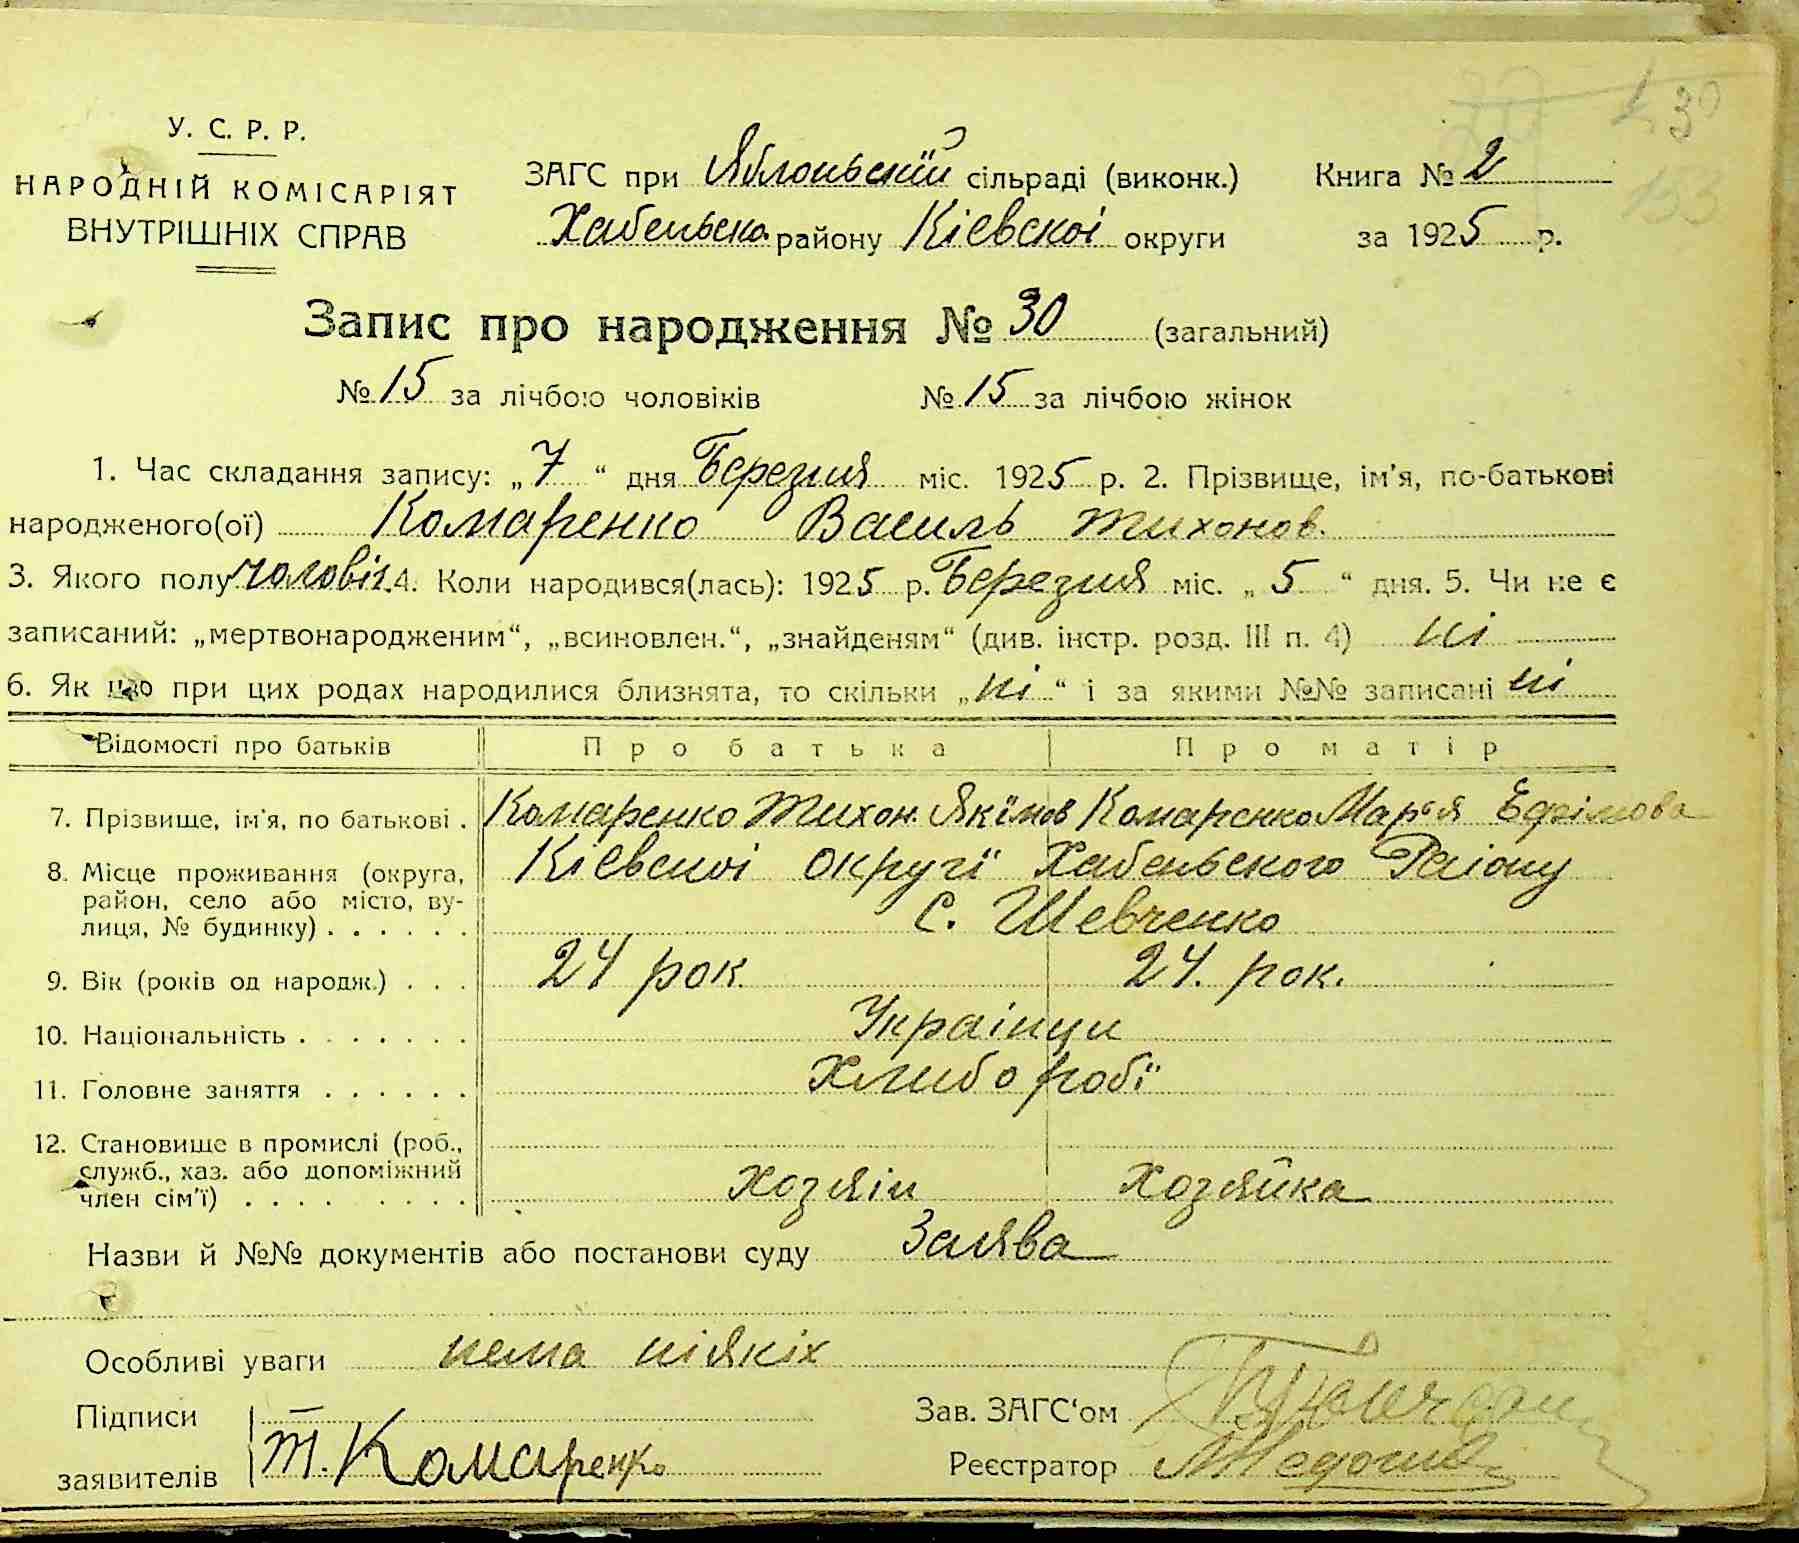 30
153
У. С. Р. Р.
НАРОДНІЙ КОМІСАРІЯТ
ВНУТРІШНІХ СПРАВ
ЗАГС при Яблоньскій сільраді (виконк.) Книга № 2
Хабеньско району Кіевскоі округи за 1925 р.
Запис про народження № 30 (загальний)
№ 15 за лічбою чоловіків № 15 за лічбою жінок
1. Час складання запису: „ 7 “ дня Березня міс. 1925 р. 2. Прізвище, ім'я, по-батькові
народженого(ої) Комаренко Василь Тихонов.
3. Якого полу чоловіч. 4. Коли народився(лась): 1925 р. Березня міс. „ 5 “ дня. 5. Чи не є
записаний: „мертвонародженим“, „всиновлен.“, „знайденям“ (див. інстр. розд. III п. 4) ні
6. Як що при цих родах народилися близнята, то скільки „ ні “ і за якими №№ записані ні
Відомості про батьків Про батька Про матір
7. Прізвище, ім'я, по батькові . Комаренко Тихон. Якімов Комаренко Мар'я Ефімова
8. Місце проживання (округа, Кіевскоі округі Хабеньского Раіону
район, село або місто, ву-
лиця, № будинку) . . . . . . С. Шевченко
9. Вік (років од народж.) . . . 24 рок 24. рок.
10. Національність . . . . . . . Украінци
11. Головне заняття . . . . . . Хлиборобі
12. Становище в промислі (роб.,
служб., хаз. або допоміжний
член сім'ї) . . . . . . . . . Хозяін Хозяйка
Назви й №№ документів або постанови суду Заява
Особливі уваги нема ніякіх
Підписи Зав. ЗАГС'ом
заявителів Т. Комаренко Реєстратор